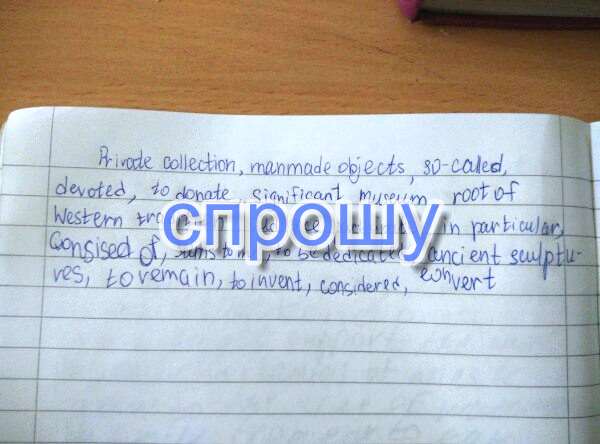 Private collection, manmade objects, so-called,
devoted, to donate, significant museum, root of
Western in particular,
Consised of, to be dedicated, ancient sculptu-
res, to remain, to invent, considered, convert
спрошу